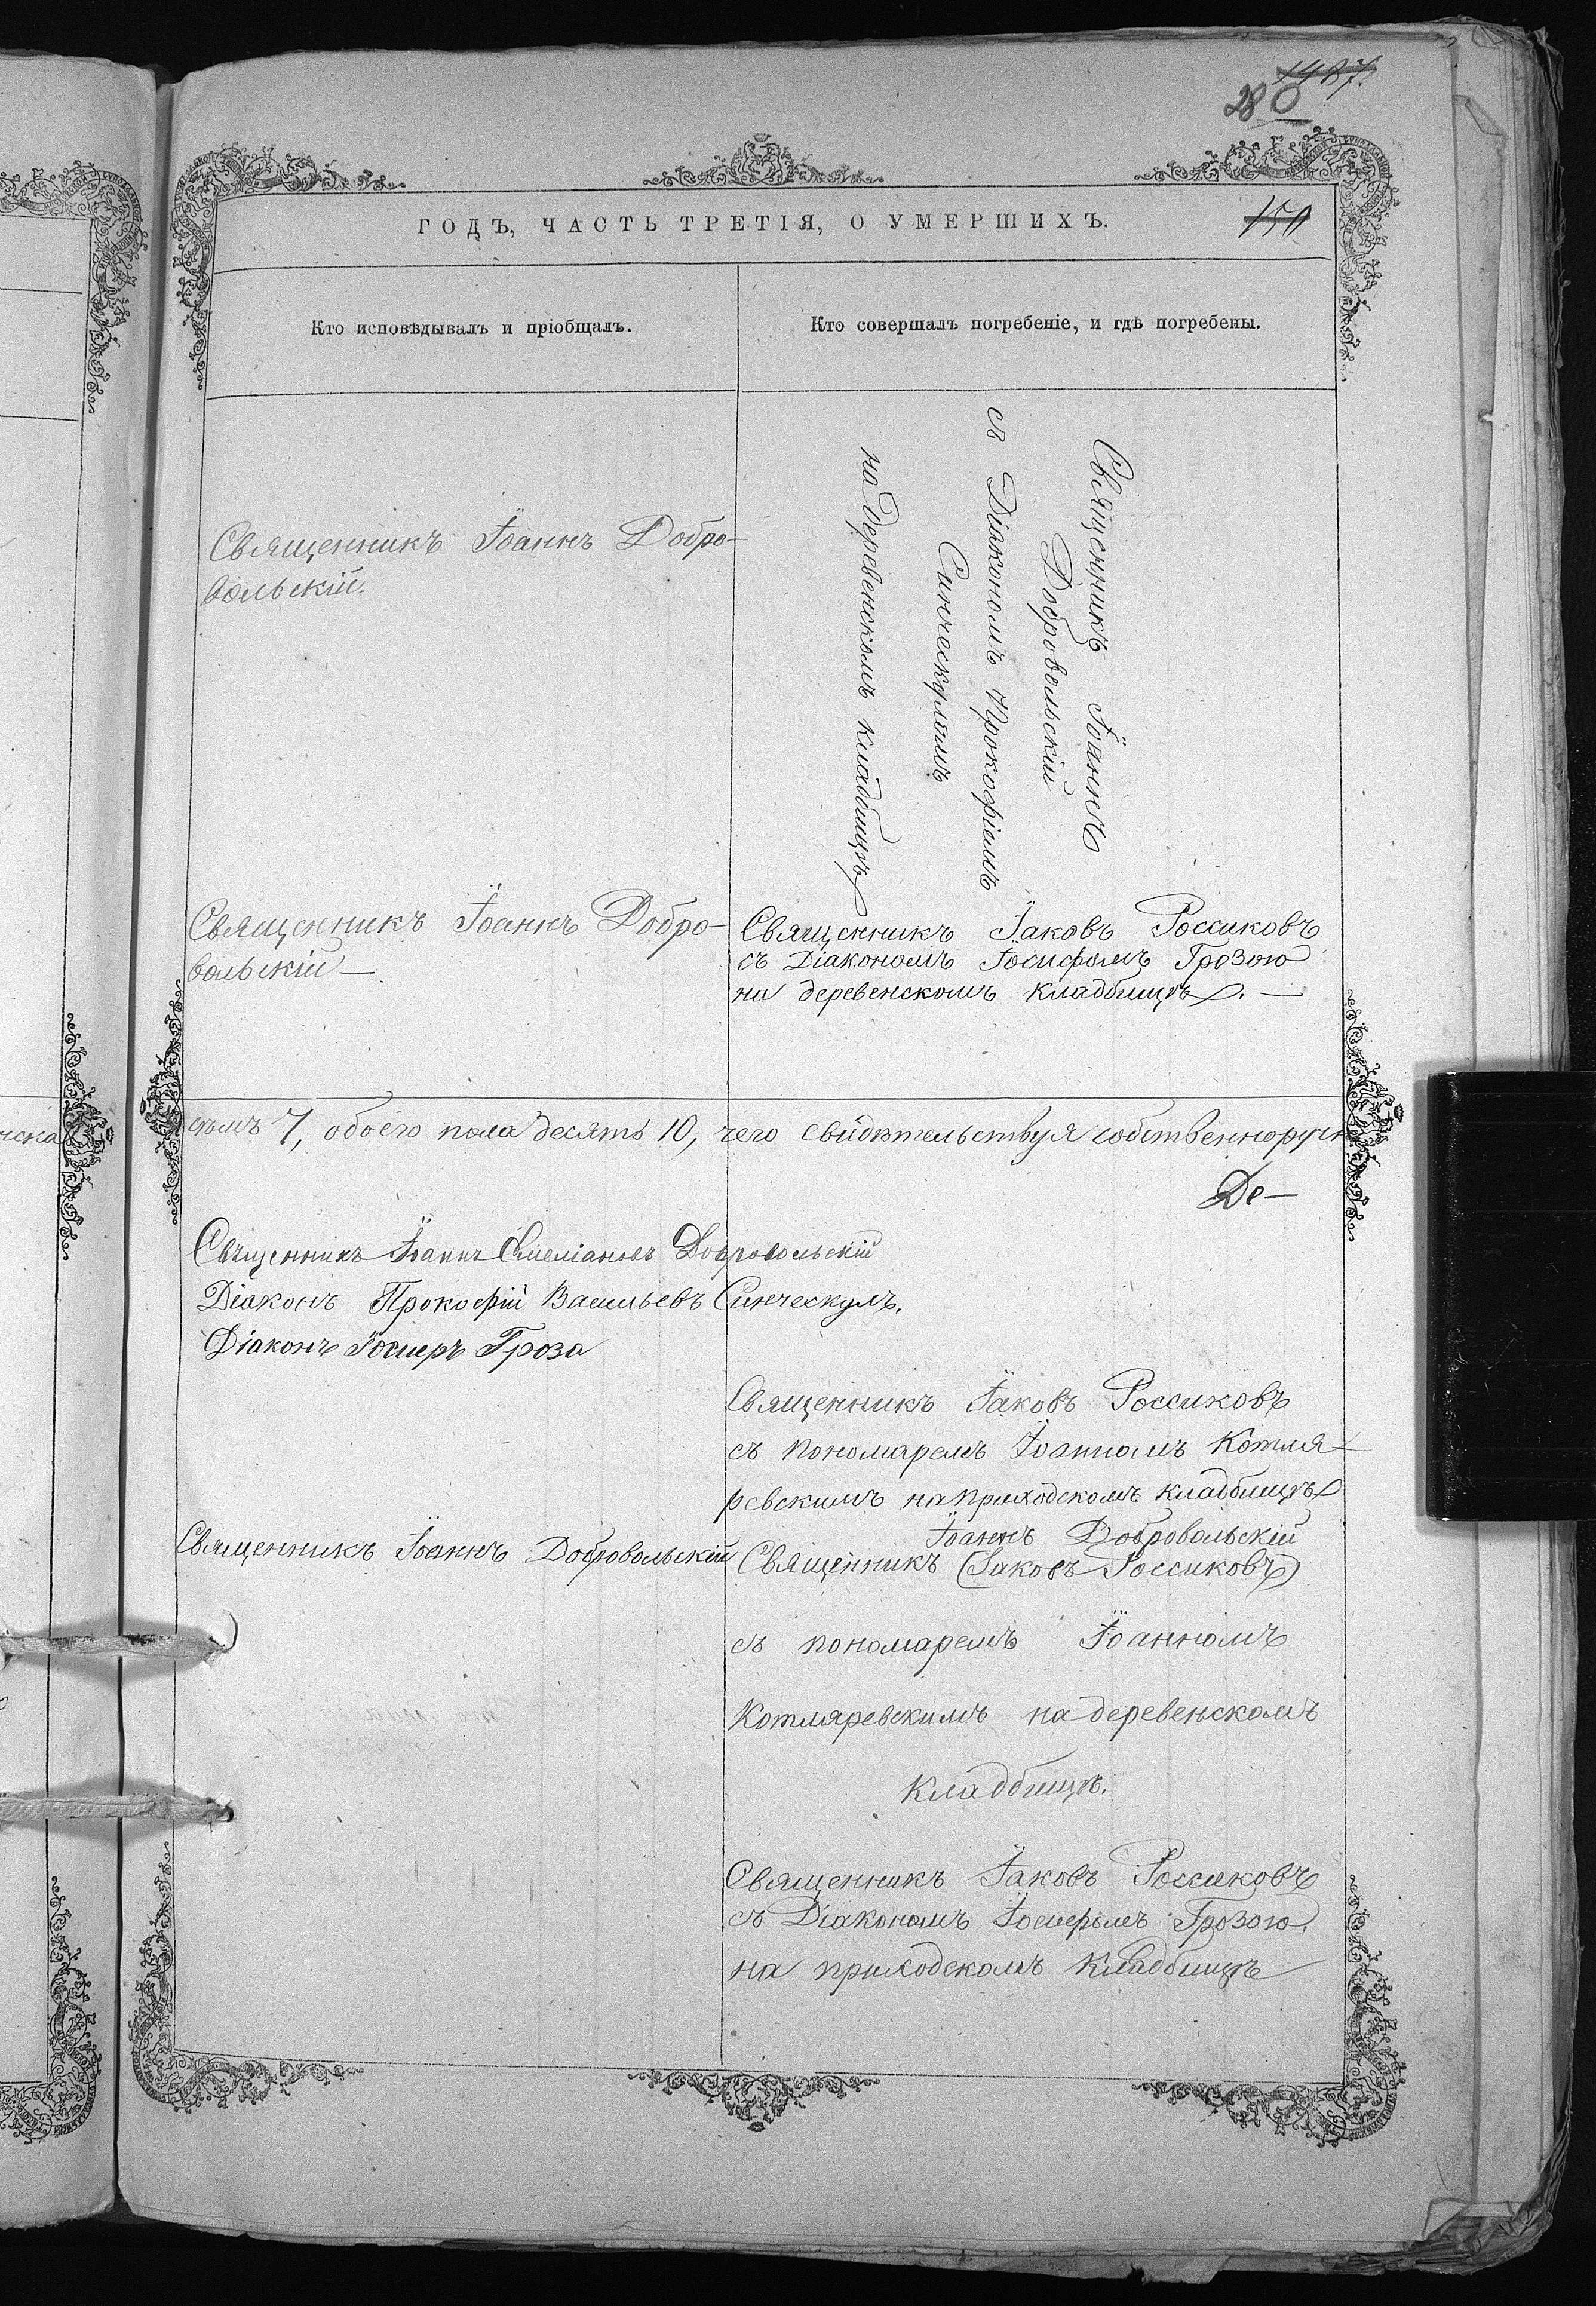 1487.
280
ГОДЪ, ЧАСТЬ ТРЕТІЯ, О УМЕРШИХЪ.
150
Кто исповѣдывалъ и пріобщалъ.
Кто совершалъ погребеніе, и гдѣ погребены.
Священникъ Іоаннъ Добро-
вольскій.
Священникъ Іоаннъ
Добровольскій
съ Діакономъ Прокофіемъ
Синческуломъ
на деревенскомъ кладбищѣ
Священникъ Іоаннъ Добро-
вольскій —
Священникъ Іаковъ Россиковъ
съ Діакономъ Іосифомъ Грозою
на деревенскомъ кладбищѣ. —
7, обоего пола десять 10, чего свидѣтельствуя собственноруч
Де—
Священникъ Іоаннъ Емеліановъ Добровольскій
Діаконъ Прокофій Васильевъ Синческулъ.
Діаконъ Іосифъ Гроза
Священникъ Іаковъ Россиковъ
съ пономаремъ Іоанномъ Котля-
ревскимъ на приходскомъ кладбищѣ
Священникъ Іоаннъ Добровольскій
Іоаннъ Добровольскій
Священникъ (Іаковъ Россиковъ)
съ пономаремъ Іоанномъ
Котляревскимъ на деревенскомъ
кладбищѣ.
Священникъ Іаковъ Россиковъ
съ Діакономъ Іосифомъ Грозою.
на приходскомъ кладбищѣ